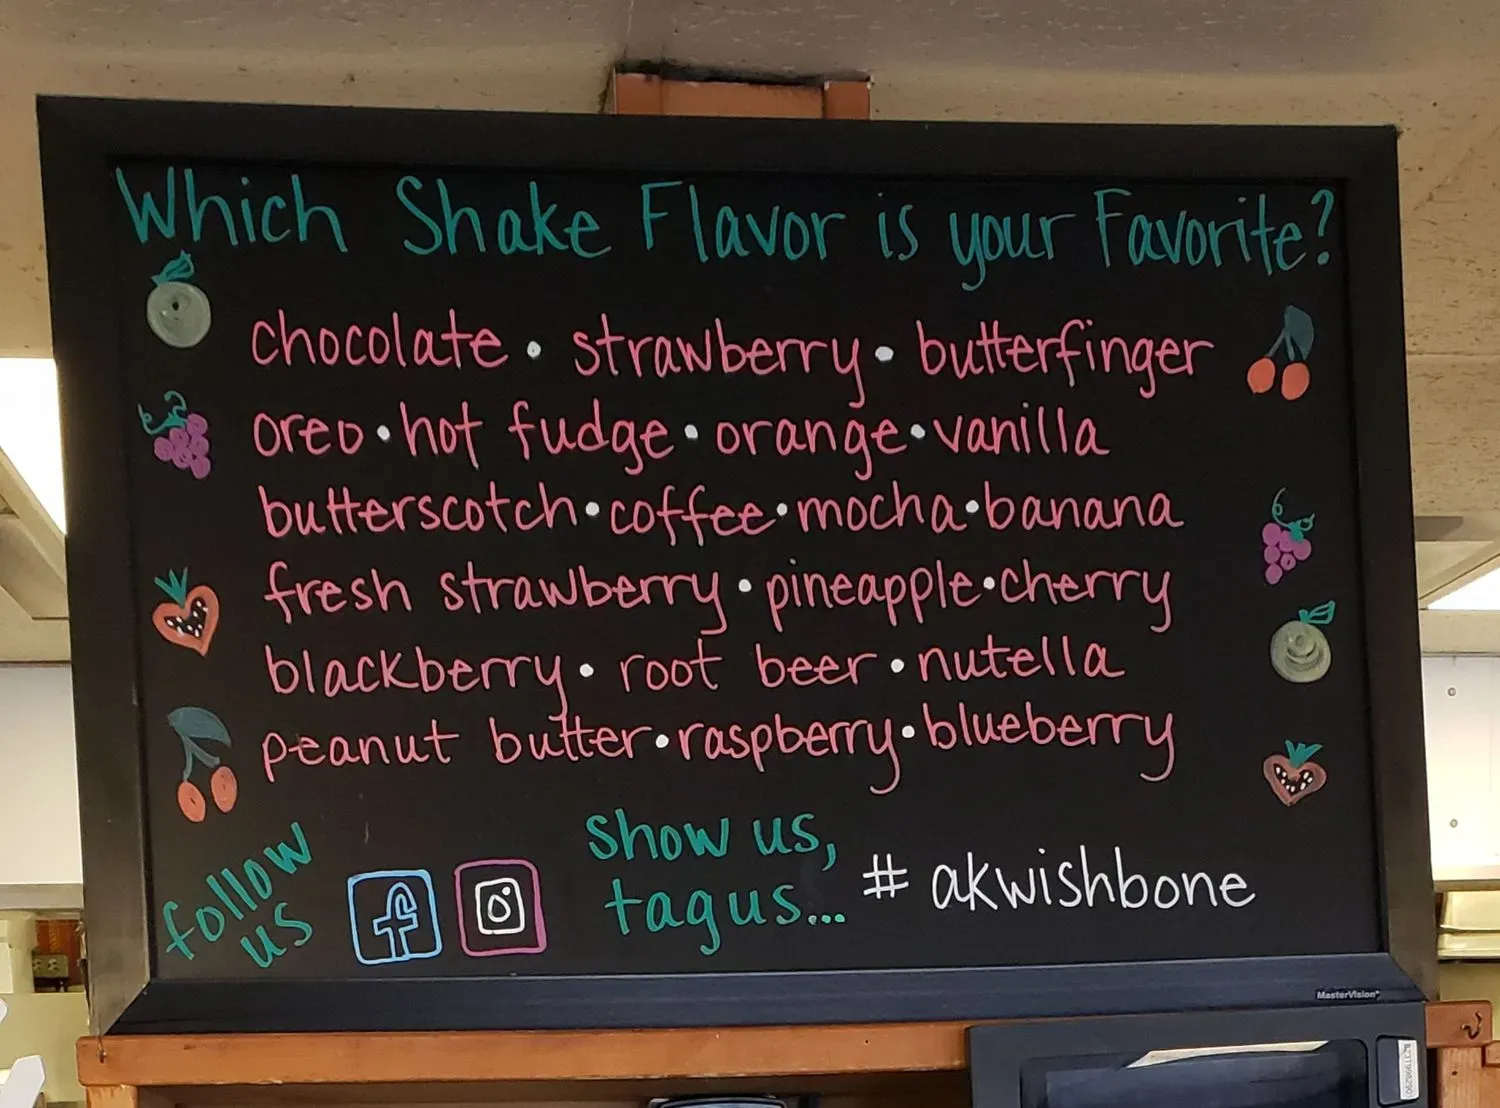 Which Shake Flavor is your Favorite?
chocolate • strawberry • butterfinger
oreo • hot fudge • orange • vanilla
butterscotch • coffee • mocha • banana
fresh strawberry • pineapple • cherry
blackberry • root beer • nutella
peanut butter • raspberry • blueberry
follow
us
show us,
tag us...
# akwishbone
MasterVision